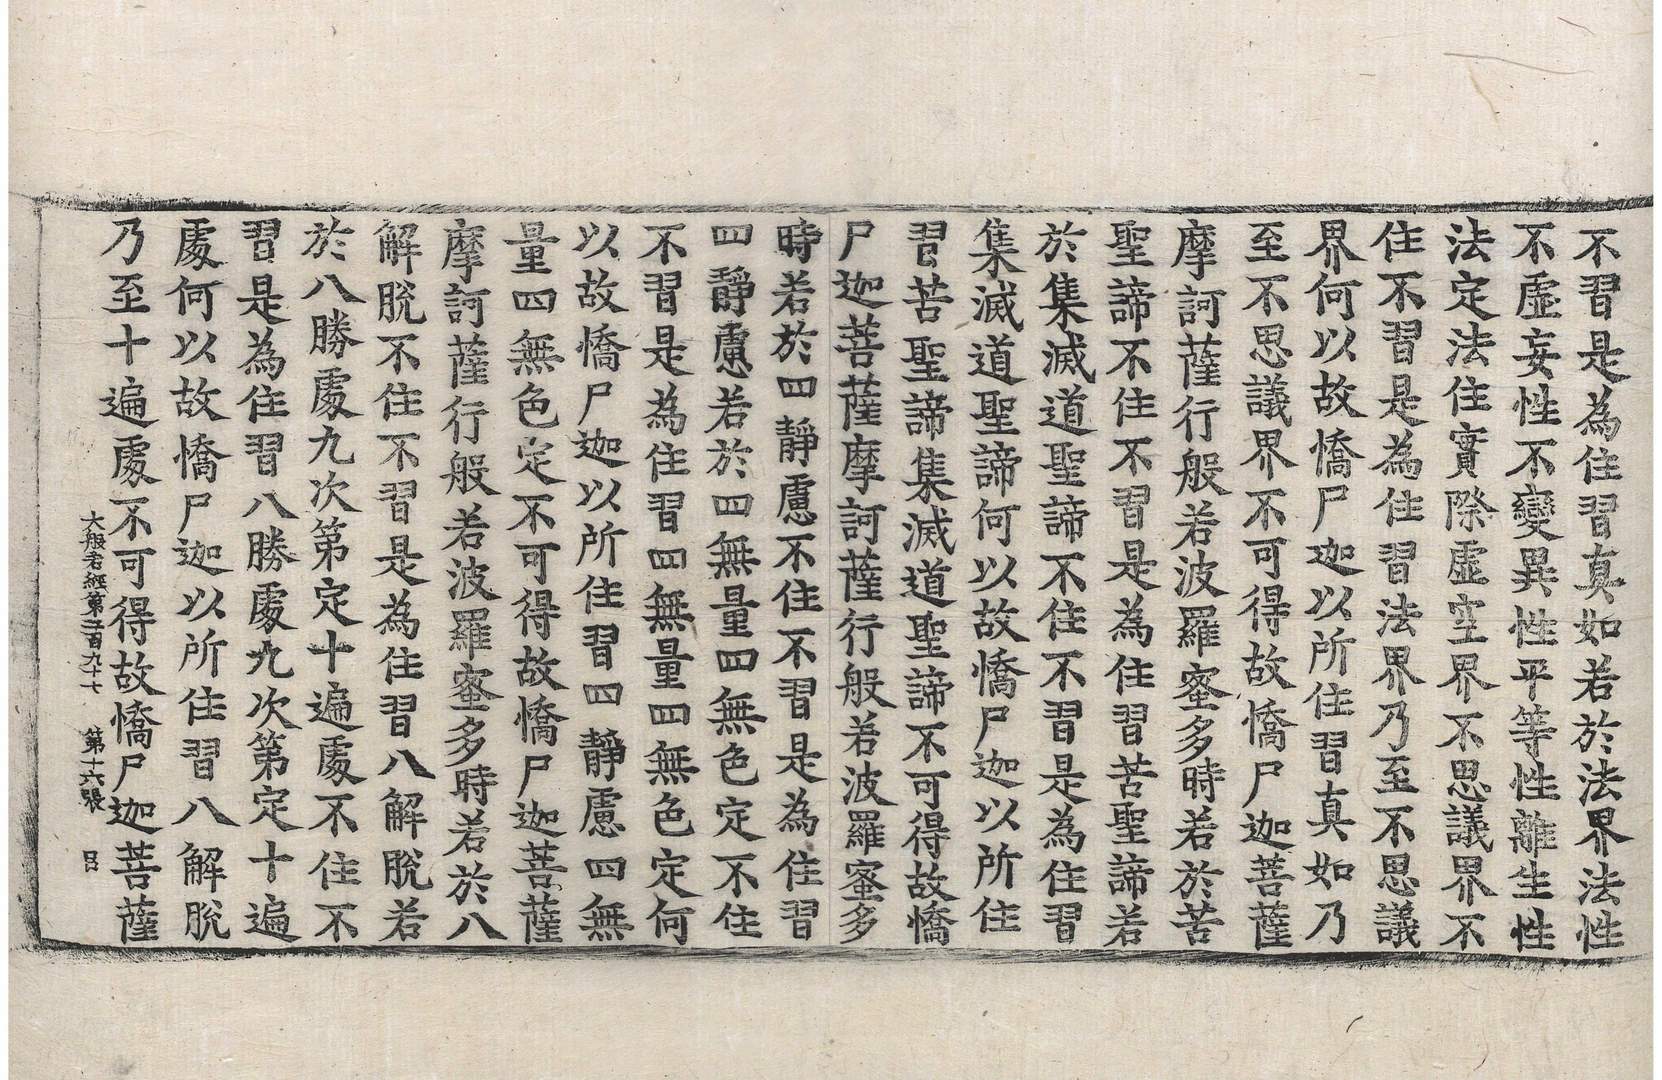 不習是為住習真如若於法界法性
不虛妄性不變異性平等性離生性
法定法住實際虛空界不思議界不
住不習是為住習法界乃至不思議
界何以故憍尸迦以所住習真如乃
至不思議界不可得故憍尸迦菩薩
摩訶薩行般若波羅蜜多時若於苦
聖諦不住不習是為住習苦聖諦若
於集滅道聖諦不住不習是為住習
集滅道聖諦何以故憍尸迦以所住
習苦聖諦集滅道聖諦不可得故憍
尸迦菩薩摩訶薩行般若波羅蜜多
時若於四靜慮不住不習是為住習
四靜慮若於四無量四無色定不住
不習是為住習四無量四無色定何
以故憍尸迦以所住習四靜慮四無
量四無色定不可得故憍尸迦菩薩
摩訶薩行般若波羅蜜多時若於八
解脫不住不習是為住習八解脫若
於八勝處九次第定十遍處不住不
習是為住習八勝處九次第定十遍
處何以故憍尸迦以所住習八解脫
乃至十遍處不可得故憍尸迦菩薩
大般若經第二百九十七 第十六張 呂